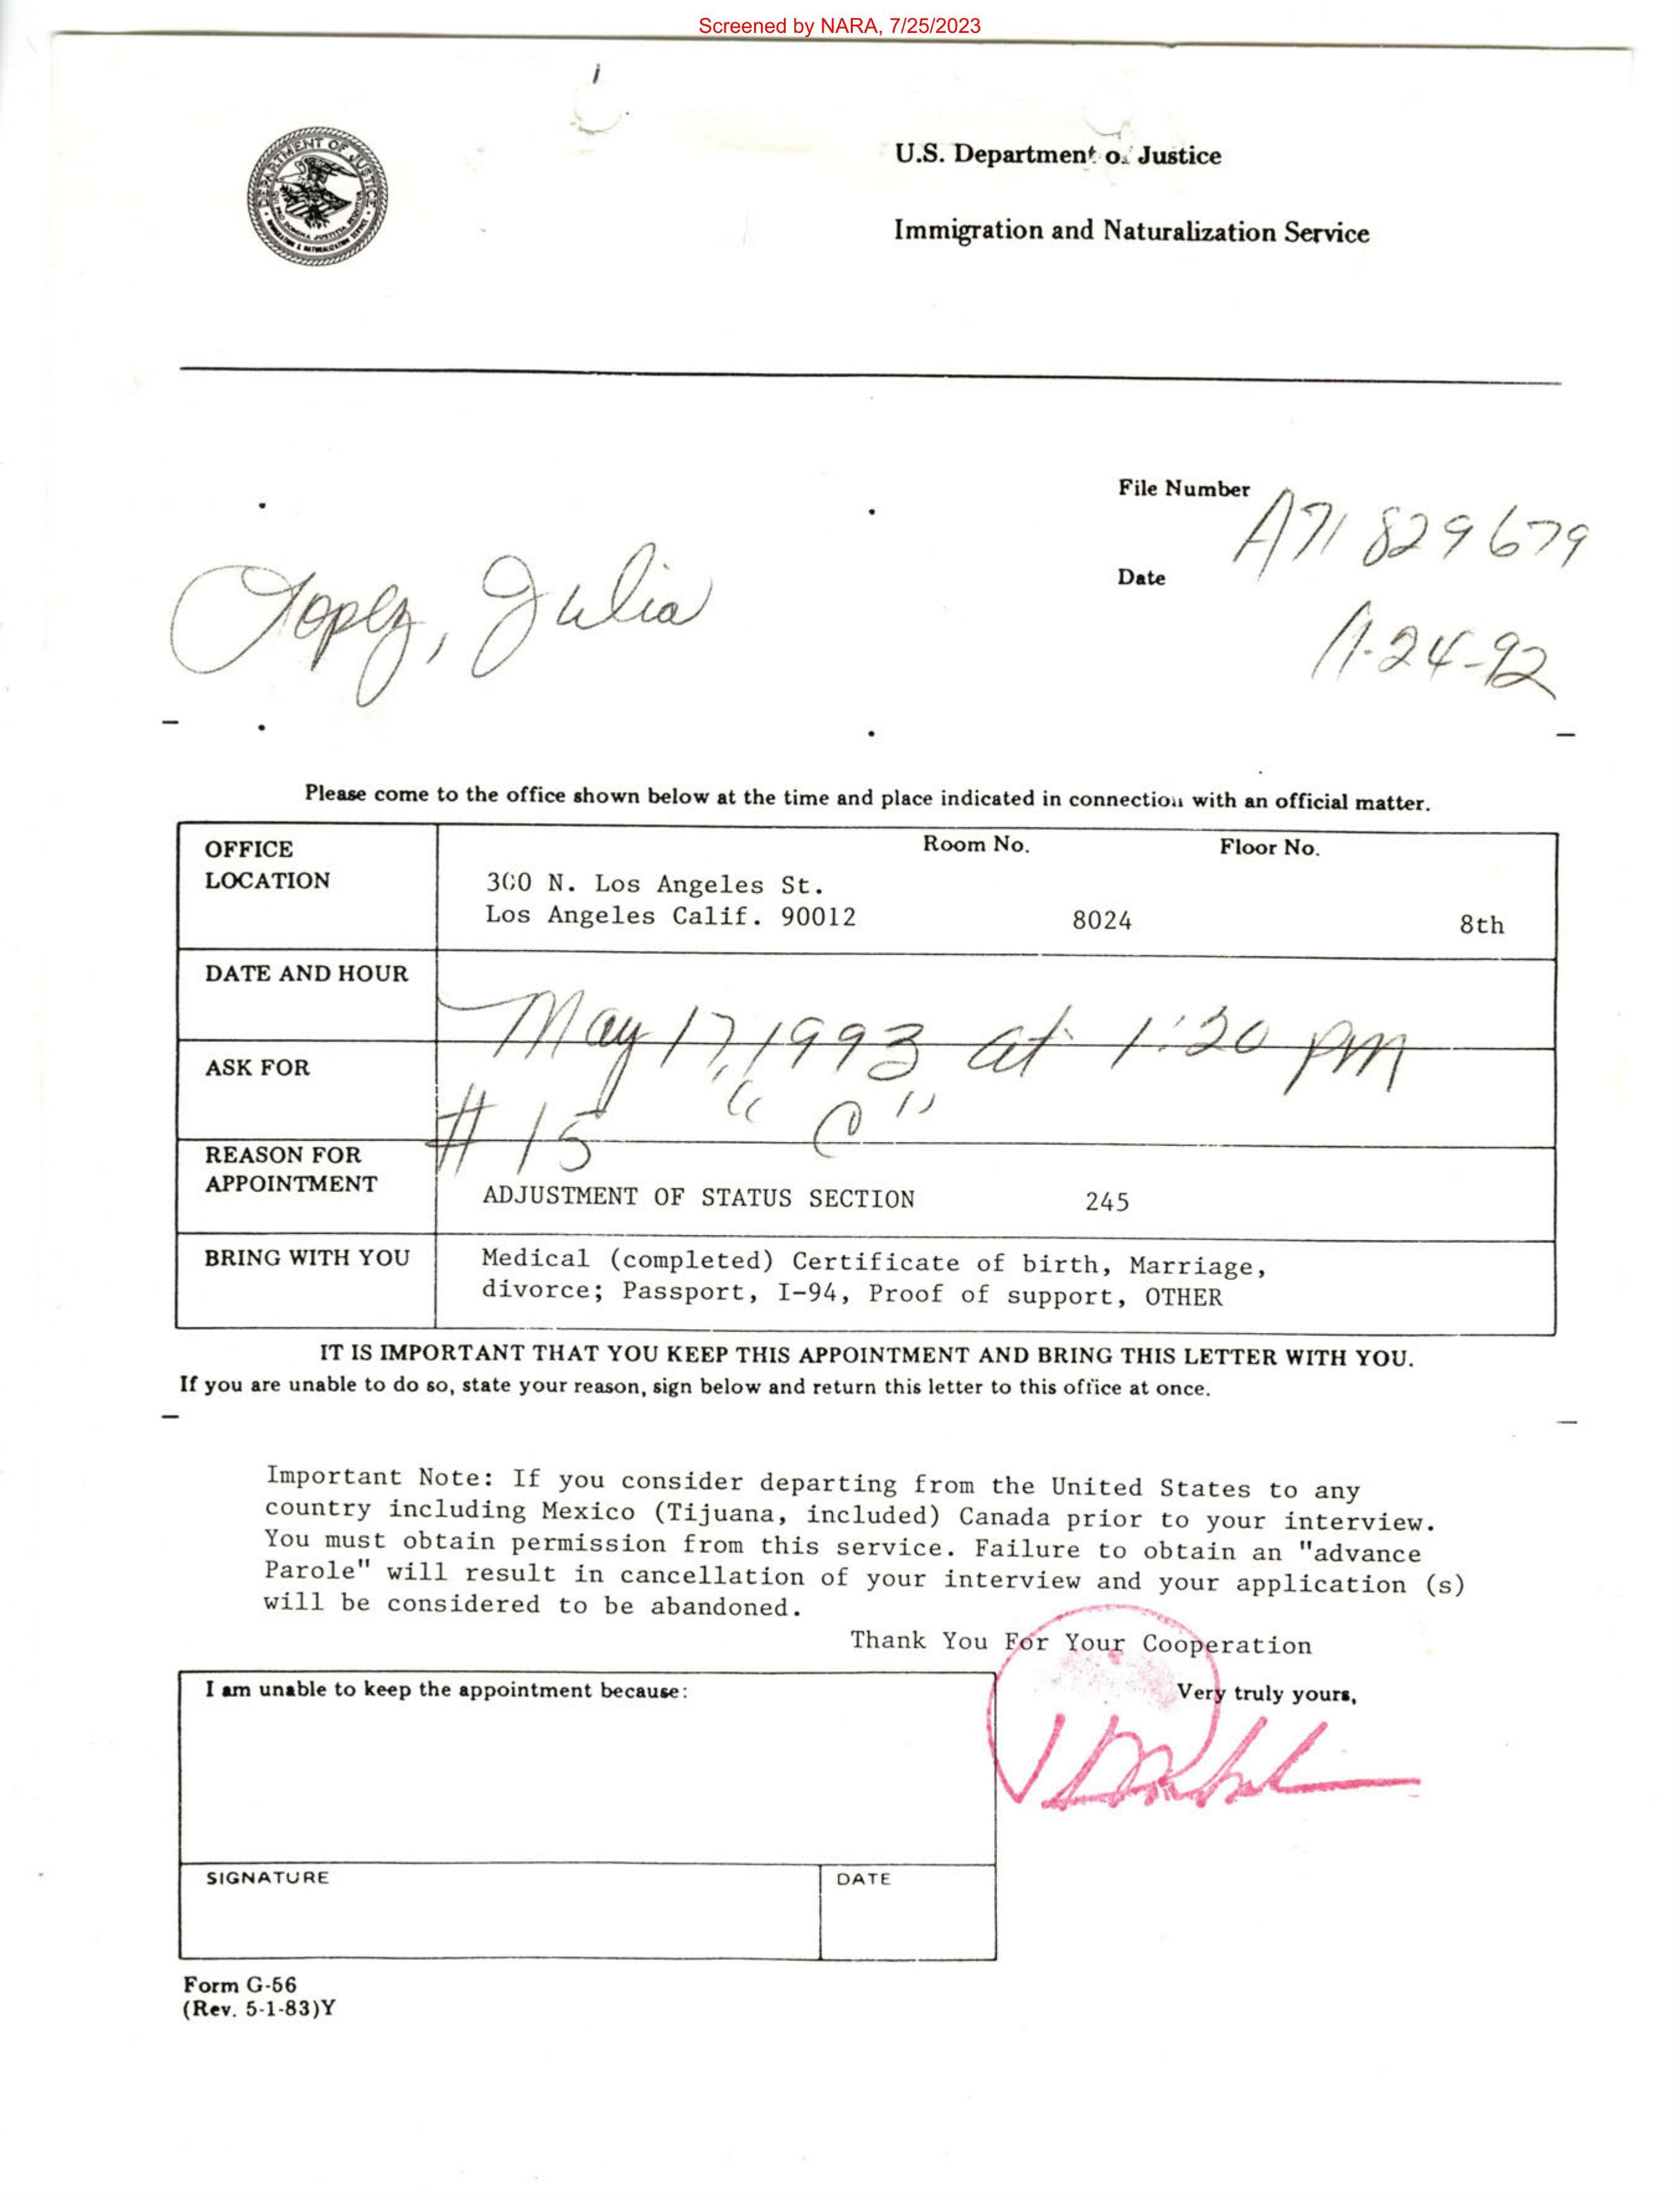 Screened by NARA, 7/25/2023
DEPARTMENT OF JUSTICE
U.S. Department of Justice
Immigration and Naturalization Service
File Number
A71 829679
Date
11-24-92
Lopez, Julia
Please come to the office shown below at the time and place indicated in connection with an official matter.
OFFICE LOCATION
Room No. Floor No.
300 N. Los Angeles St.
Los Angeles Calif. 90012 8024 8th
DATE AND HOUR
May 17, 1993 at 1:20 pm
ASK FOR
# 15 "C"
REASON FOR APPOINTMENT
ADJUSTMENT OF STATUS SECTION 245
BRING WITH YOU
Medical (completed) Certificate of birth, Marriage,
divorce; Passport, I-94, Proof of support, OTHER
IT IS IMPORTANT THAT YOU KEEP THIS APPOINTMENT AND BRING THIS LETTER WITH YOU.
If you are unable to do so, state your reason, sign below and return this letter to this office at once.
Important Note: If you consider departing from the United States to any
country including Mexico (Tijuana, included) Canada prior to your interview.
You must obtain permission from this service. Failure to obtain an "advance
Parole" will result in cancellation of your interview and your application (s)
will be considered to be abandoned.
Thank You For Your Cooperation
I am unable to keep the appointment because:
Very truly yours,
SIGNATURE
DATE
Form G-56
(Rev. 5-1-83)Y